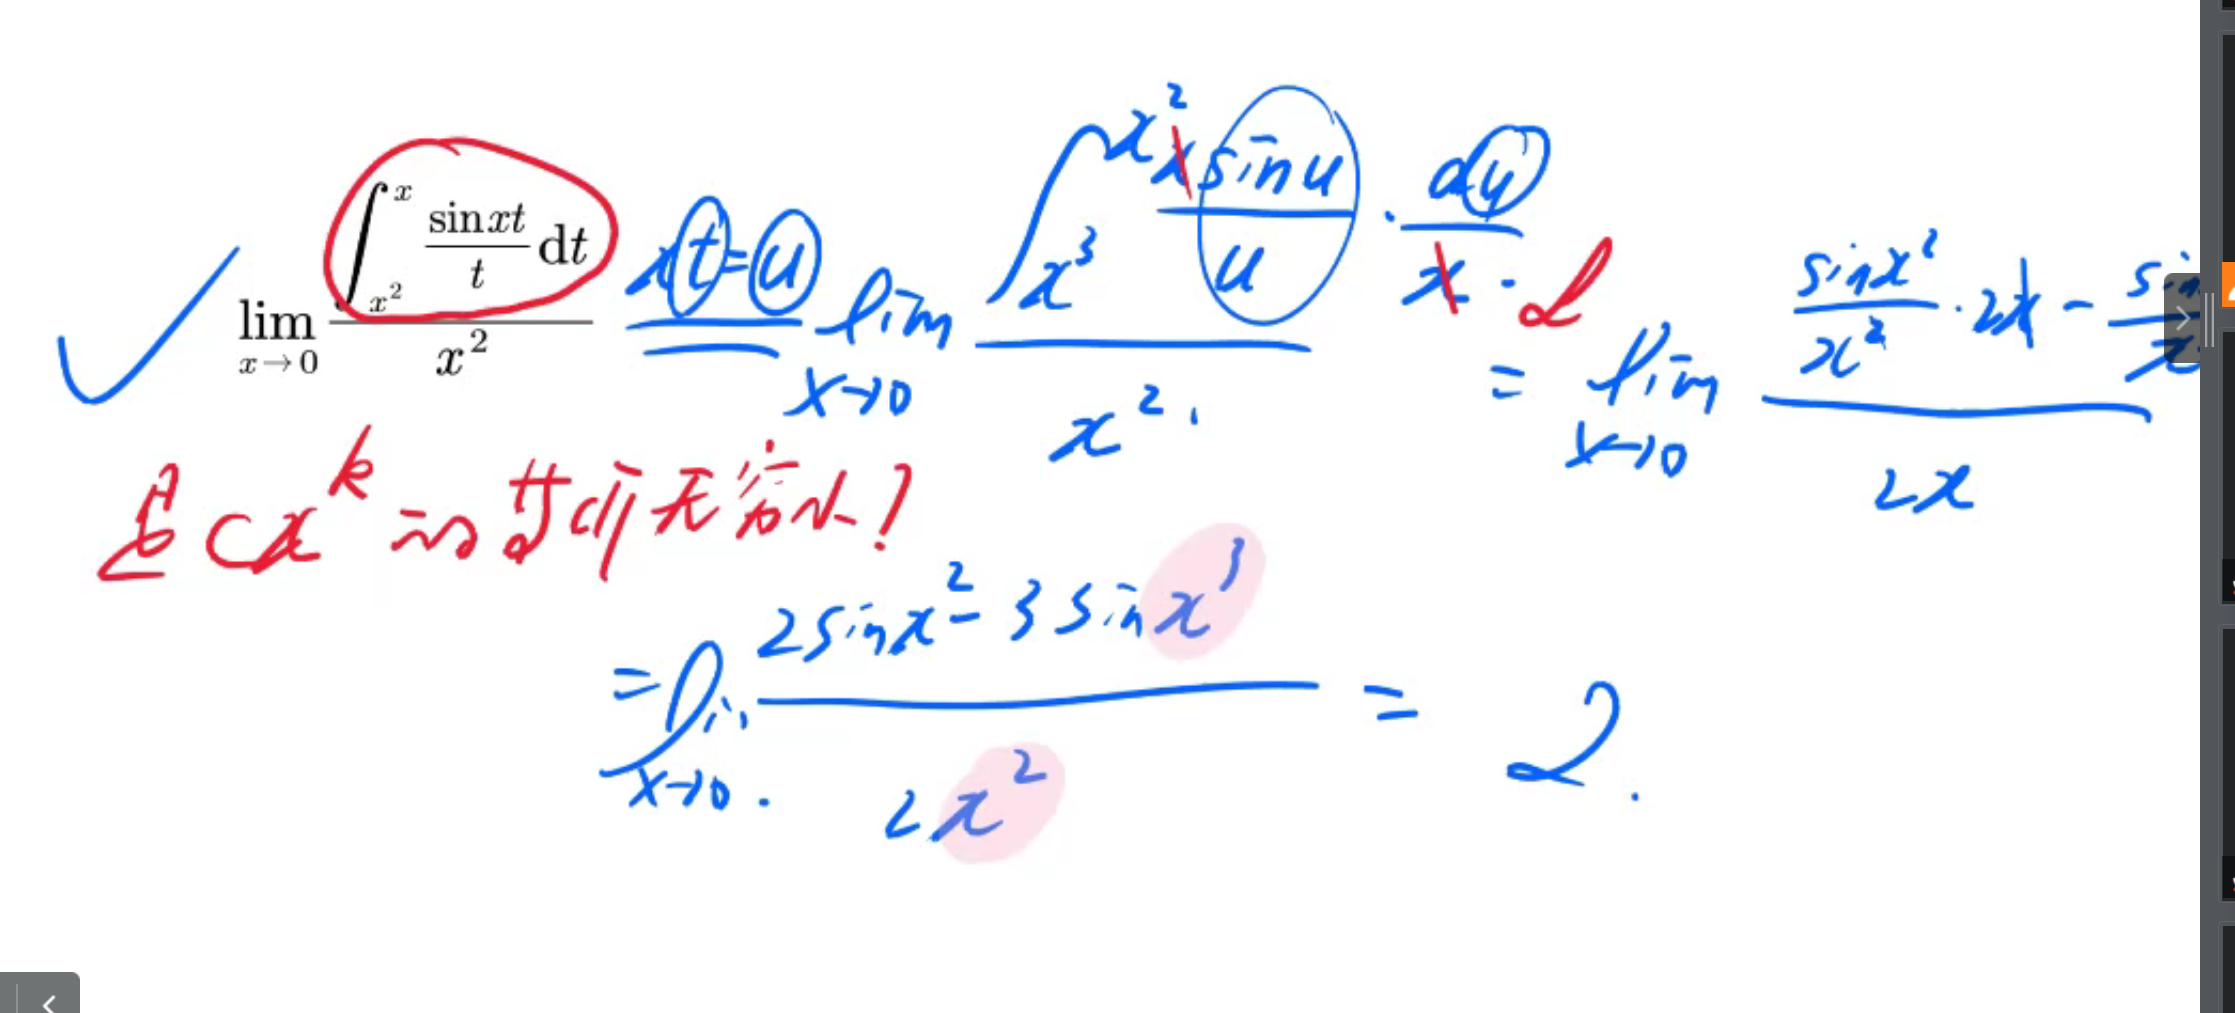 lim_{x→0} \frac{∫_{x^2}^{x} \frac{sin xt}{t} dt}{x^2} \underline{xt=u} lim_{x→0} \frac{∫_{x^3}^{x^2} \frac{x sin u}{u} · \frac{du}{x}}{x^2}.
= lim_{x→0} \frac{\frac{sin x^2}{x^2} · 2x - \frac{sin
2x
是 cx^k 的 阶无穷小!
= lim_{x→0} \frac{2 sin x^2 - 3 sin x^3}{2x^2} = 2.